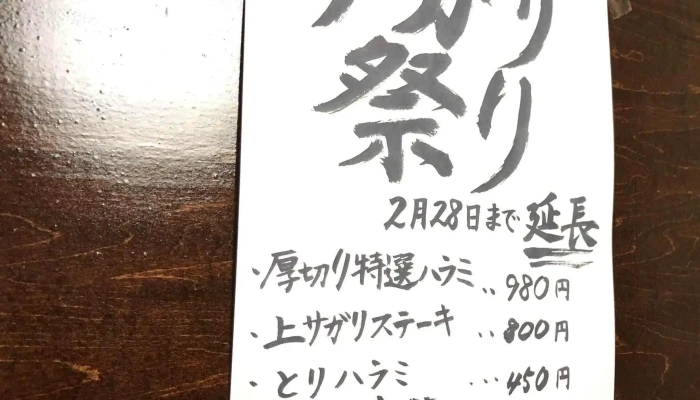 祭り
2月28日まで延長
・厚切り特選ハラミ‥980円
・上サガリステーキ‥800円
・とりハラミ…450円